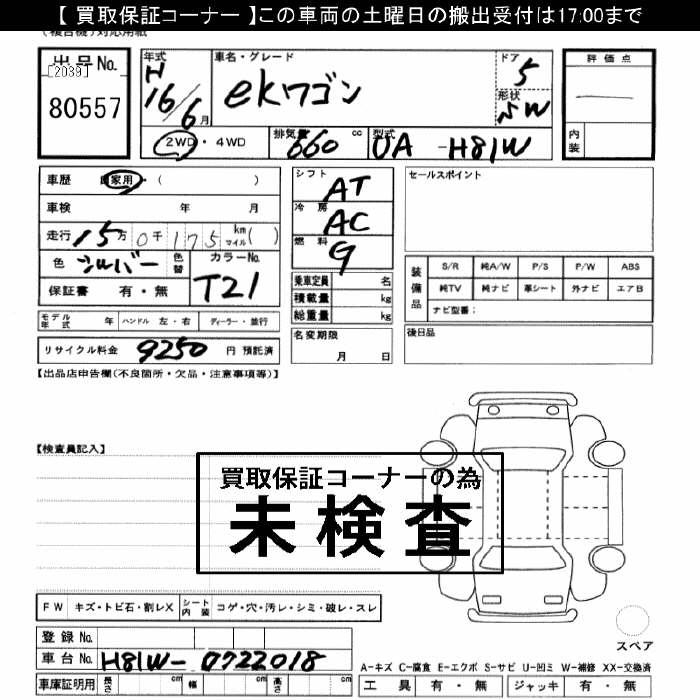 【 買取保証コーナー 】この車両の土曜日の搬出受付は17:00まで
(複合機)対応用紙
出品No.
[2039]
80557
年式
H
16/6月
車名・グレード
ekワゴン
ドア
5
形状
SW
評価点
内装
2WD・4WD
排気量
660 cc
型式
UA -H81W
車歴 自家用・( )
車検 年 月
走行 15万0千175 km マイル( )
色 シルバー 色替
カラーNo.
T21
保証書 有・無
モデル年式 年 ハンドル 左・右 ディーラー・並行
リサイクル料金 9250 円 預託済
シフト AT
冷房 AC
燃料 G
乗車定員 名
積載量 kg
総重量 kg
名変期限
月 日
セールスポイント
装備品
S/R 純A/W P/S P/W ABS
純TV 純ナビ 革シート 外ナビ エアB
ナビ型番:
後日品
【出品店申告欄(不良箇所・欠品・注意事項等)】
【検査員記入】
買取保証コーナーの為
未検査
FW キズ・トビ石・割レX シート内装 コゲ・穴・汚レ・シミ・破レ・スレ
スペア
登録No.
車台No. H81W-0722018
車庫証明用 長さ cm 幅 cm 高さ cm
A-キズ C-腐食 E-エクボ S-サビ U-凹ミ W-補修 XX-交換済
工具 有・無 ジャッキ 有・無